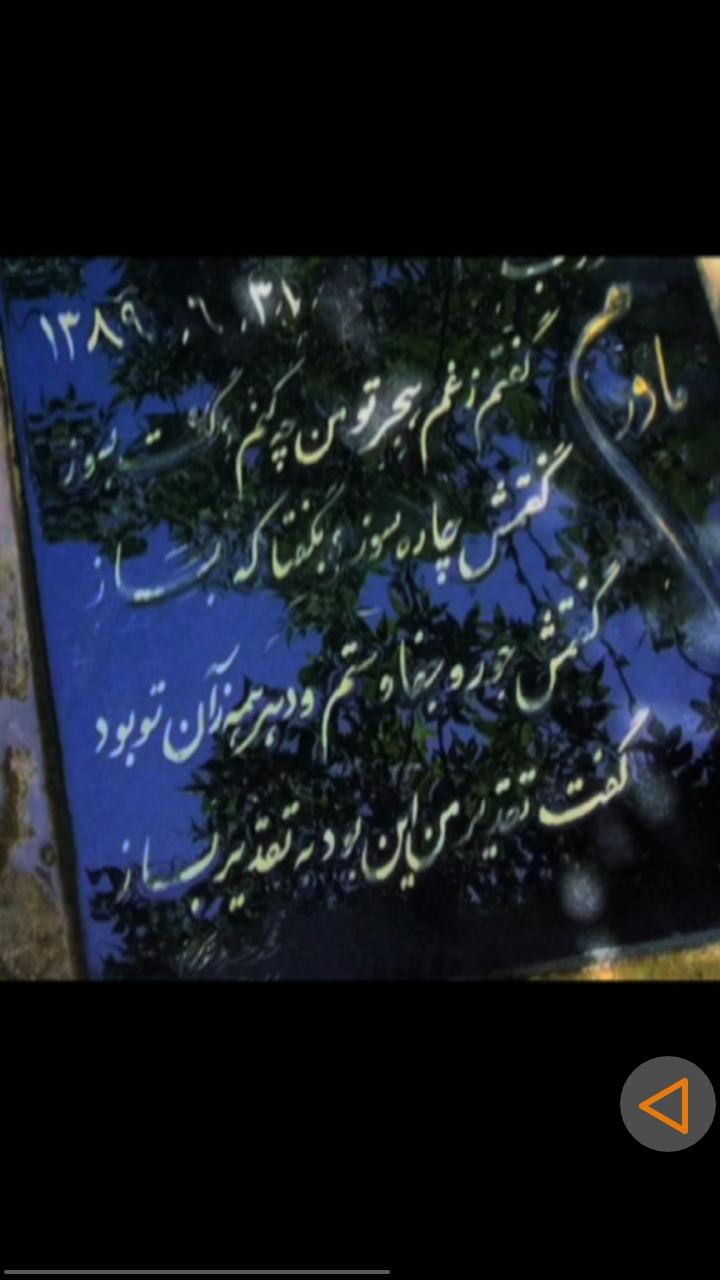 ۱۳۸۹.۶.۳۱
مادرم
گفتم ز غم هجر تو من چه کنم، گفت بسوز
گفتمش چاره سوز، بگفتا که بساز
گفتمش جور و جفا و ستم و دهر همه زآن تو بود
گفت تقدیر من این بود به تقدیر بساز